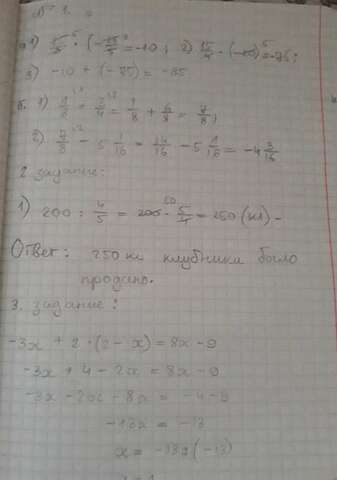 1) · (- = -10 ; 2) · (-20) = -75;
3) -10 + (-75) = -85
б. 1) 1/8 + 3/4 = 1/8 + 6/8 = 7/8;
2) 7/8 - 5 1/16 = 14/16 - 5 1/16 = -4 3/16
2. задание:
1) 200 : 4/5 = 200 · 5/4 = 250 (кг) -
Ответ: 250 кг клубники было
продано.
3. задание:
-3x + 2 · (2 - x) = 8x - 9
-3x + 4 - 2x = 8x - 9
-3x - 2x - 8x = -4 - 9
-13x = -13